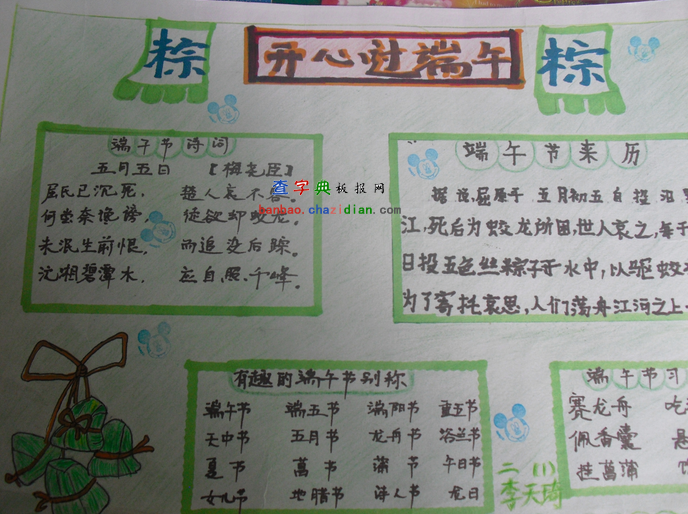 粽
开心过端午
粽
端午节诗词
五月五日 【梅尧臣】
屈氏已沉死， 楚人哀不容。
何尝奈谗谤， 徒欲却蛟龙。
未泯生前恨， 而追没后踪。
沅湘碧潭水， 应自照千峰。
查字典板报网
banbao.chazidian.com
端午节来历
据说，屈原于五月初五自投汨
江，死后为蛟龙所困，世人哀之，每于
日投五色丝粽子于水中，以驱蛟
为了寄托哀思，人们荡舟江河之上
有趣的端午节别称
端午节 端五节 端阳节 重五节
天中节 五月节 龙舟节 浴兰节
夏节 菖节 蒲节 午日节
女儿节 地腊节 诗人节 龙日
端午节习
赛龙舟 吃
佩香囊 悬
挂菖蒲
二（1）
李天琦